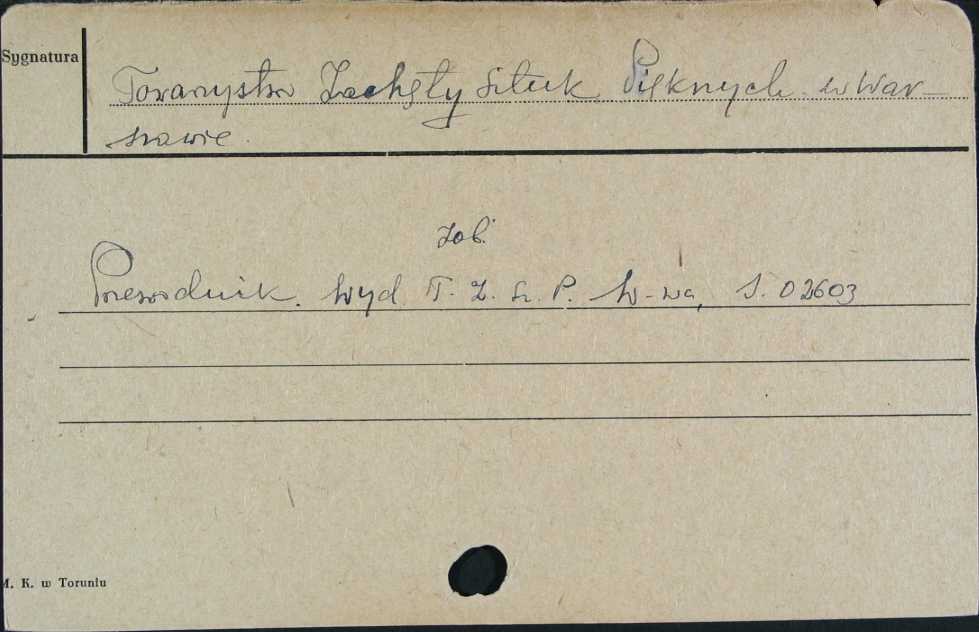 Sygnatura
Towarzystwo Zachęty Sztuk Pięknych w War-
szawie.
zob.
Przewodnik. Wyd. T. Z. Sz. P. W-wa, S. 02603
M. K. w Toruniu